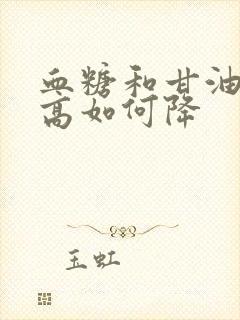 血糖和甘油
高如何降
玉虹